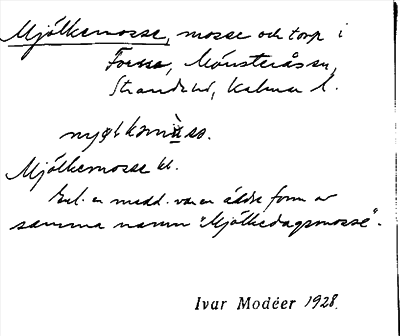 Mjölkemosse, mosse och torp i
Forssa, Mönsterås sn,
Stranda hd, Kalmar l.
Mjölkemosse kt.
Enl. en medd. var en äldre form av
samma namn "Mjölkedagsmosse".
Ivar Modéer 1928.